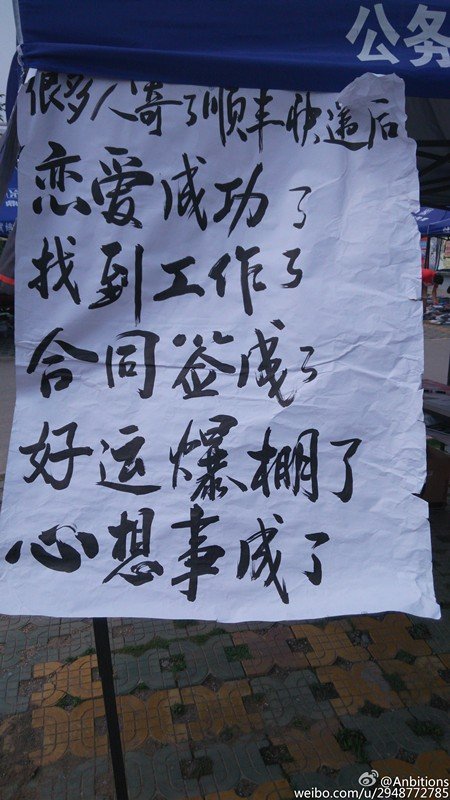 公务
很多人寄了顺丰快递后
恋爱成功了
找到工作了
合同签成了
好运爆棚了
心想事成了
@Anbitions
weibo.com/u/2948772785